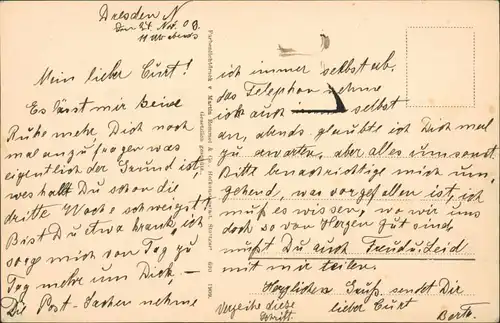 Dresden N
den 21. Nov. 09.
11 Uhr abends
Mein lieber Curt!
Es lässt mir keine
Ruhe mehr, Dich noch
mal anzufragen was
eigentlich der Grund ist,
weshalb Du schon die
dritte Woche schweigst?
Bist Du etwa krank, ich
sorge mich von Tag zu
Tag mehr um Dich, –
Die Post-Sachen nehme
ich immer selbst ab.
das Telephon nehme
ich auch selbst
an, abends glaubte ich Dich mal
zu erwarten, aber alles umsonst
Bitte benachrichtige mich um,
gehend, was vorgefallen ist, ich
muß es wissen, wo wir uns
doch so von Herzen gut sind
mußt Du auch Freud u. Leid
mit mir teilen.
Herzlichen Gruß sendet Dir
lieber Curt
Berta.
Verzeihe diese
Schrift.
Gesetzlich geschützt.
1909.